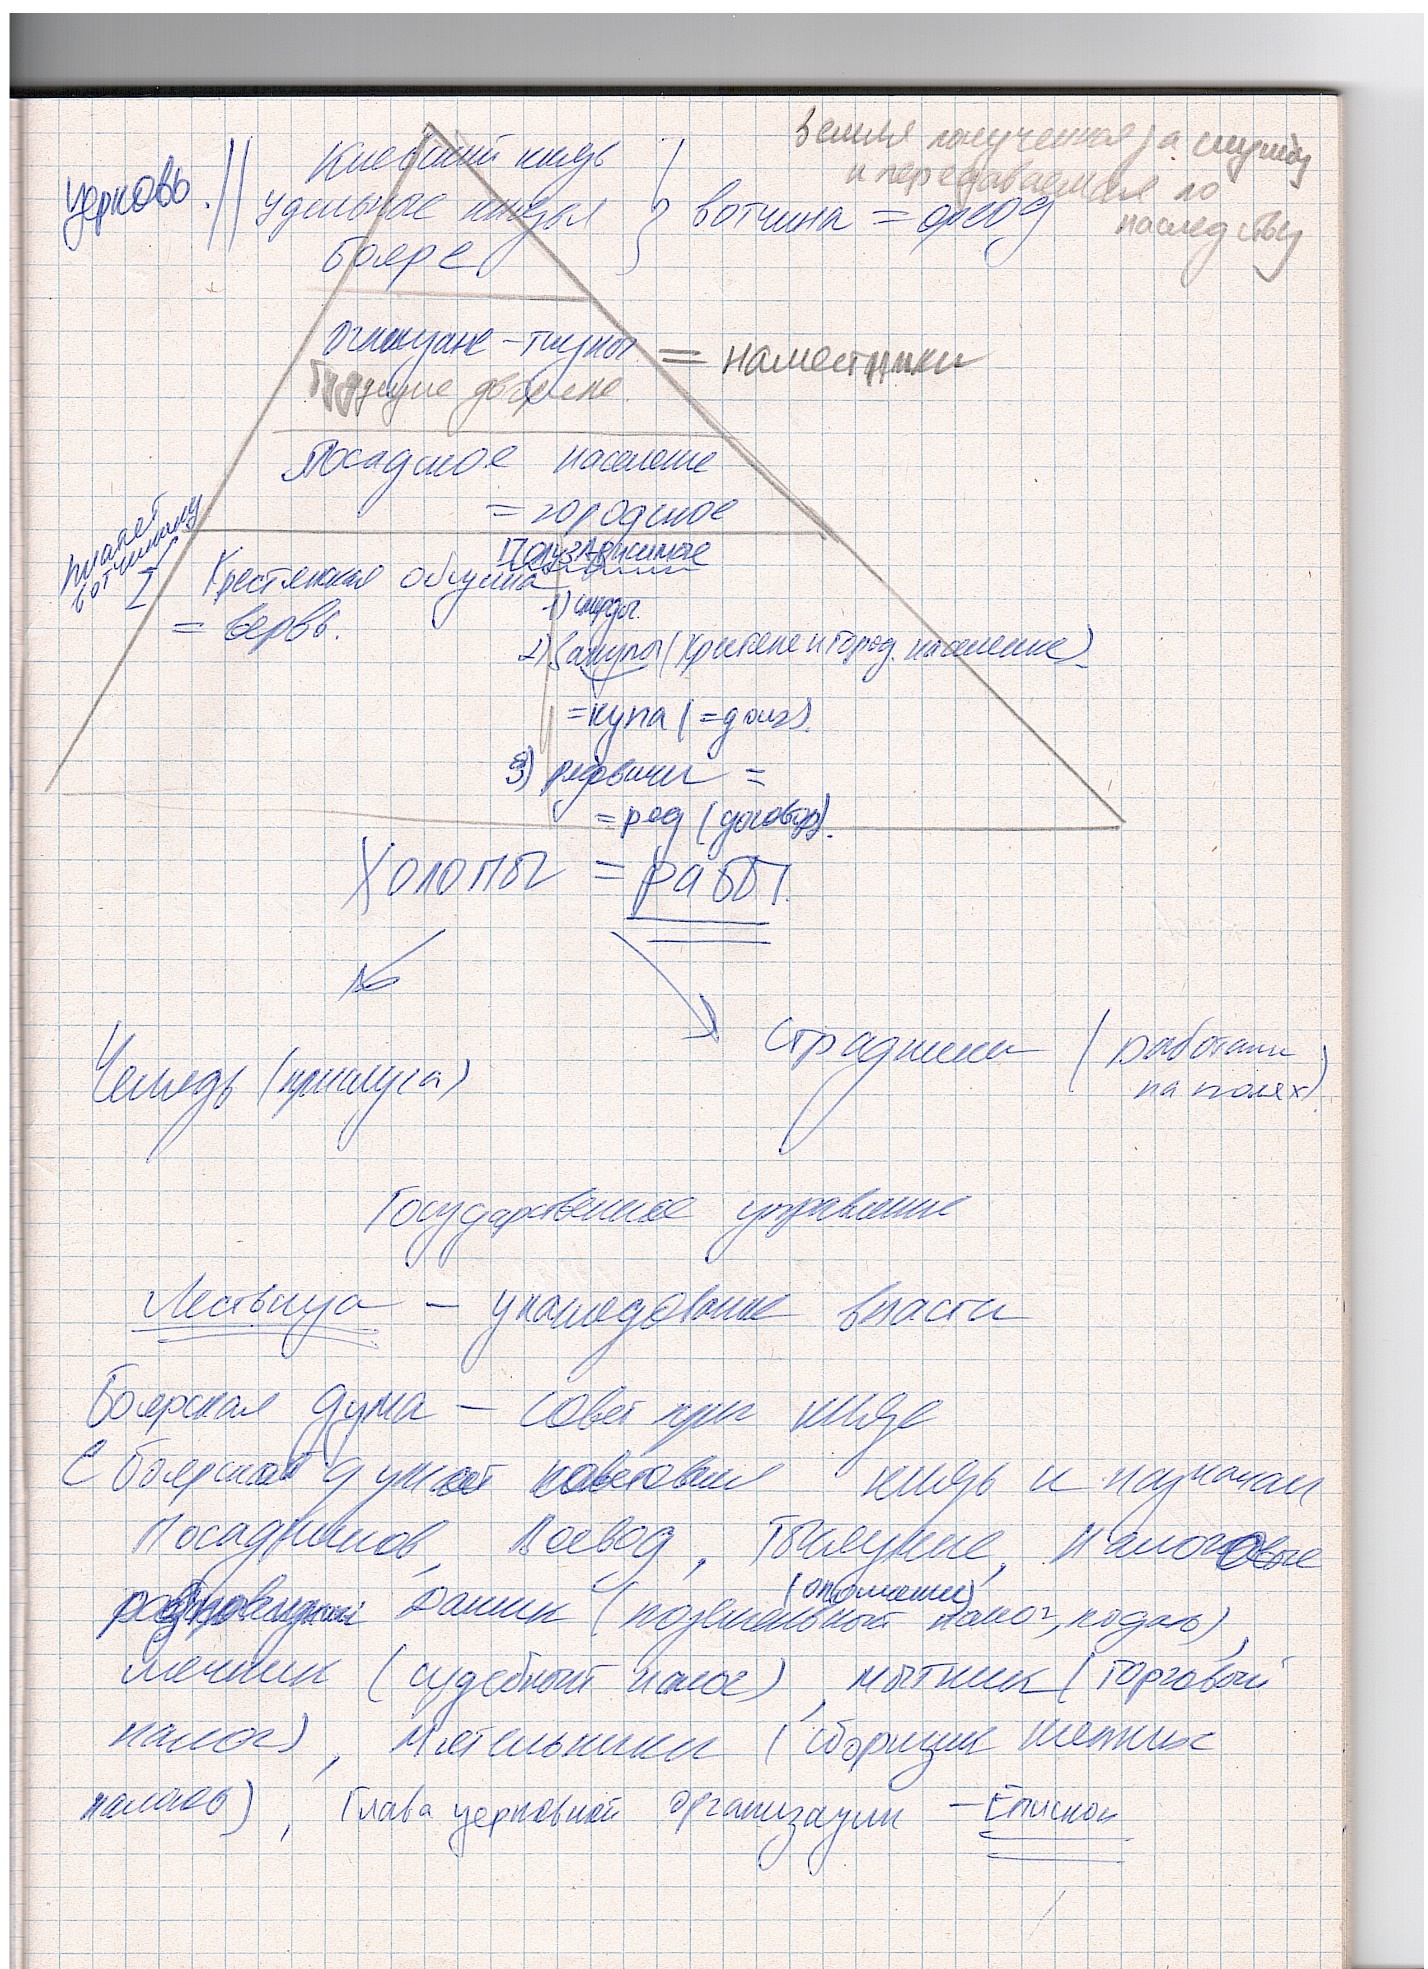 церковь. // Киевский князь
удельные князья
бояре
} вотчина = феод
Земля полученная за службу
и передаваемая по
наследству
Огнищане - тиуны = наместники
Будущие дворяне.
Посадское население
= городское
платит
вотчиннику
Крестьянская община
= вервь.
Полузависимые
1) смерды.
2) Закупы (крестьяне и город. население).
= купа (= долг).
3) рядовичи =
= ряд (договор).
Холопы = рабы.
Челядь (прислуга)
Страдники (работали
на полях).
Государственное управление
Лествица - унаследование власти
Боярская дума - совет при князе
С боярской думой советовался князь и назначал
Посадников, Воевод, Тысяцкие, Налоговые
данник ( налог, подать),
мечник (судебный налог), мытник (торговый
налог), Мятельники (сборщик
налогов), Глава церковной организации - Епископ